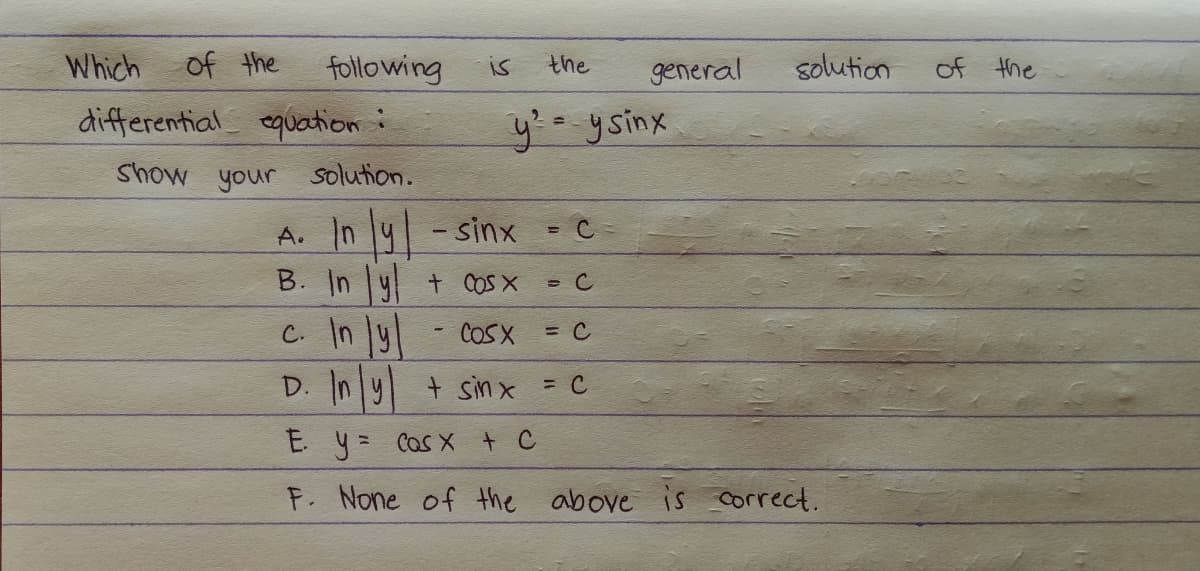 Which of the following is the general solution of the
differential equation : y' = y sinx
Show your solution.
A. ln |y| - sinx = C
B. ln |y| + cos x = C
C. ln |y| - cosx = C
D. ln |y| + sin x = C
E. y = cos x + C
F. None of the above is correct.